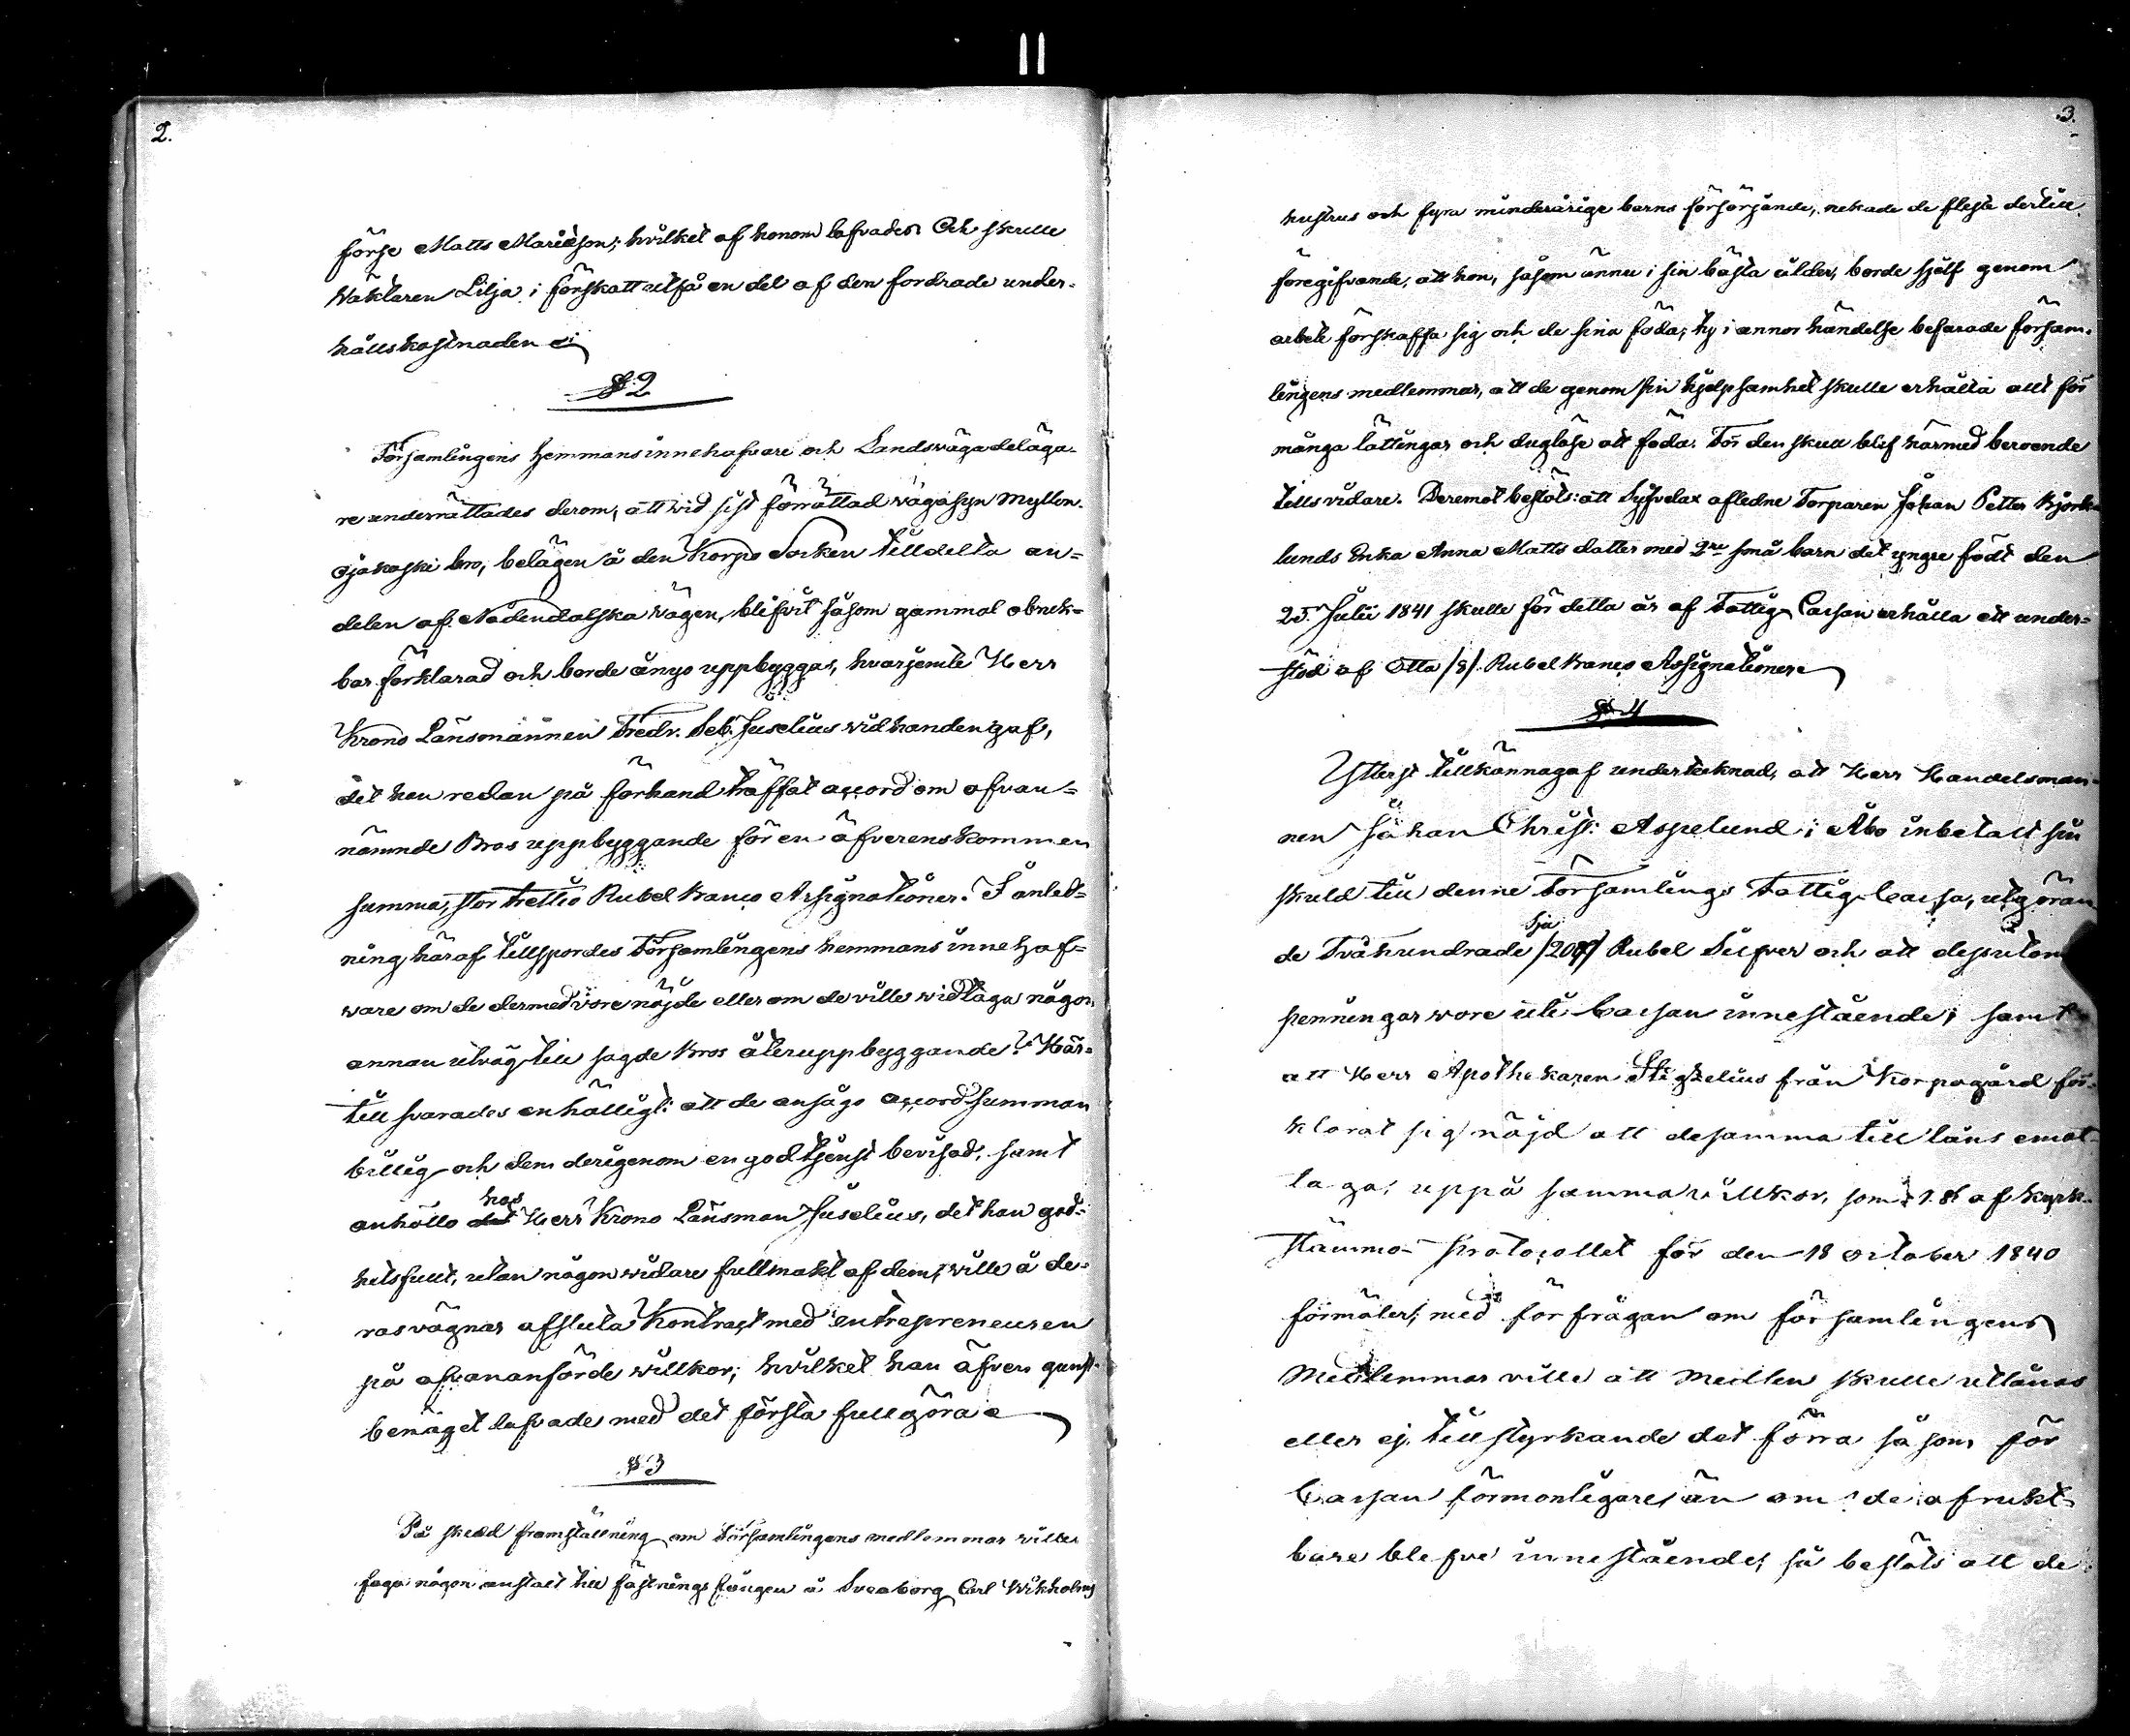 2.
förse Matts Mariæson; hvilket af honom lofvades. Och skulle
Väktaren Lilja i förskott utfå en del af den fordrade under-
hållskostnaden
§ 2
Församlingens Hemmansinnehafvare och Landsvägadeläga-
re underrättades derom, att wid sist förrättad vägasyn Myllen-
ojakoski bro, belägen å den Korpo Socken tilldelta an-
delen af Nådendalska vägen, blifvit såsom gammal obruk-
bar förklarad och borde ånyo uppbyggas, hvarjemte Herr
Krono Länsmannen Fredr. Seb. Juselius vidhandengaf,
det han redan på förhand träffat accord om ofvan-
nämnde Bros uppbyggande för en öfverenskommen
summa, stor trettio Rubel Banco Assignationer. I anled-
ning häraf tillspordes Församlingens hemmansinnehaf-
ware om de dermed vore nöjde eller om de ville widtaga någon
annan utväg till sagde Bros återuppbyggande? Här-
till svarades enhälligt: att de ansågo accordsumman
billig och dem derigenom en god tjenst bevisad, samt
anhöllo hos Herr Krono Länsman Juselius, det han god-
hetsfullt, utan någon widare fullmakt af dem, wille å de-
ras vägnar afsluta Kontract med entrepreneuren
på ofvananförde willkor; hvilket han äfven gunst-
benäget lofvade med det första fullgöra
§ 3
På skedd framställning om Församlingens medlemmar wille
foga någon anstalt till fästningsfången å Sveaborg Carl Wikholms
3.
hustrus och fyra minderårige barns försörjande, nekade de fleste dertill
föregifvande, att hon, såsom ännu i sin bästa ålder, borde sjelf genom
arbete förskaffa sig och de sina föda; ty i annor händelse befarade försam-
lingens medlemmar, att de genom sin hjelpsamhet skulle erhålla allt för
många lättingar och duglöse att föda. För den skull blef härmed beroende
tillsvidare. Deremot beslöts: att Sysvelax afledne Torparen Johan Petter Björk-
lunds Enka Anna Matts dotter med 2ne små barn det yngre född den
25 Julii 1841 skulle för detta år af Fattig Cassan erhålla ett under-
stöd af Otta /8/ Rubel Banco Assignationer
§ 4
Ytterst tillkännagaf undertecknad, att Herr Handelsman-
nen Johan Christ: Aspelund i Åbo inbetalt sin
skuld till denne Församlings Fattig-Cassa, utgöran-
de Tvåhundrade sju /207/ Rubel Silfver och att dessutom
penningar wore uti Cassan innestående; samt
att Herr Apothekaren Stigzelius från Korpogård för-
klarat sig nöjd att desamma till låns emot-
taga, uppå samma willkor, som § af Kyrk-
stämmo- Protocollet för den 18 October 1840
förmäler; med förfrågan om församlingens
Medlemmar ville att Medlen skulle utlånas
eller ej, tillstyrkande det förra såsom för
Cassan förmonligare, än om de ofrukt-
bare blefve innestående; så beslöts att de